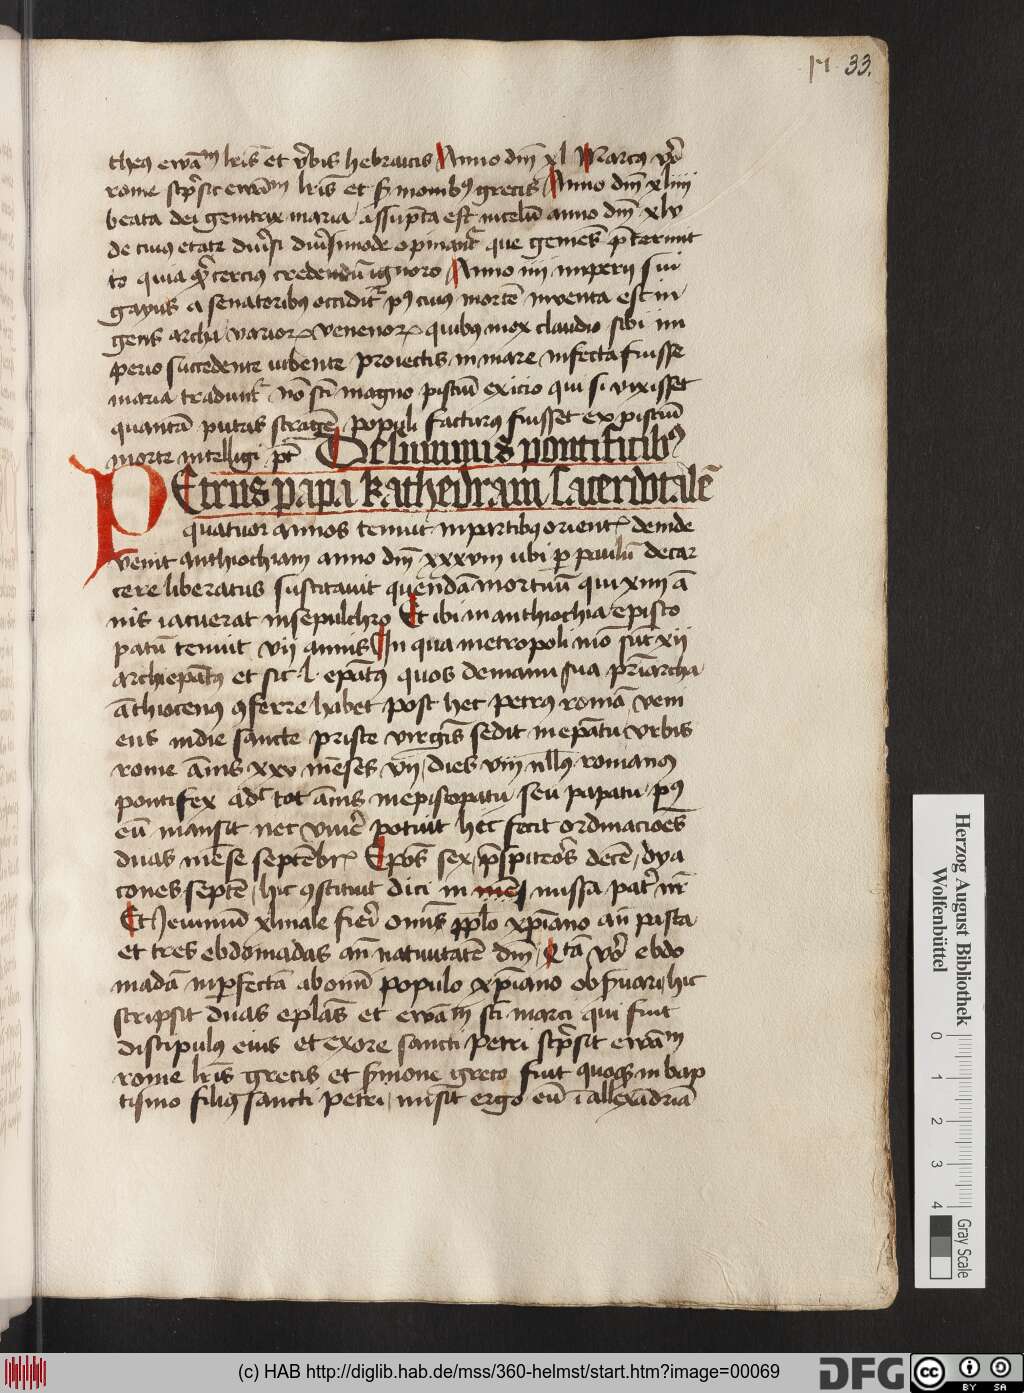 33.
theus ewam lris et vbis hebraicis Anno dm xl Marcus vo
rome scpsit ewam lris et smonibus grecis Anno dm xliiii
beata dei genitrix maria assupta est in celu anno dm xlv
de cuius etate diusi diusimode opinant que gemes pterunt
to quia qd cercius credendu ignoro Anno iiii imperii sui
gayus a senatoribus occidit pus cuius morte inventa est in
gens archa varior venenor quibus mox claudio sibi im
perio succedente iubente proiectis in mare infecta fuisse
maria tradunt no sn magno pisciu exicio qui si vixisset
quanta putas strage populi facturus fuisset ex pisciu
morte intelligi pt De summis pontificibus
PEtrus papa kathedram sacerdotale
quatuor annos tenuit in partibus orient deinde
venit anthiochiam anno dm xxxviii ubi p paulu de car
cere liberatus suscitauit quenda mortuu qui xiiii a
nis iacuerat in sepulchro Et ibi in anthiochia episco
patu tenuit vii annis In qua metropoli mo sut xii
archiepatus et sic l epatus quos de manu sua priarcha
athiocenus 9ferre habet post hec petrus roma veni
ens in die sancte prisce virgis sedit in epatu urbis
rome anis xxv meses vii dies viii nllus romanus
pontifex adc tot anis in episcopatu seu papatu pus
eu mansit nec viue potuit hec fecit ordinacioes
duas mese septebr Epos sex pspiteos dece dya
cones septe hic 9stituit dici in missa pat nr
Et Jeiuniu xlmale fieri omis pplo xpiano an pasca
et tres ebdomadas an natiuitate dm qta vo ebdo
mada inpfecta ab omi populo xpiano obsuari hic
scripsit duas eplas et ewam sci marci qui fuit
discipulus eius et ex ore sancti petri scpsit ewam
rome lris grecis et smone greco fuit quoqz in bap
tismo filius sancti petri misit ergo eu i allexadria
Herzog August Bibliothek
Wolfenbüttel
0 1 2 3 4
Gray Scale
(c) HAB http://diglib.hab.de/mss/360-helmst/start.htm?image=00069
DFG
cc BY SA